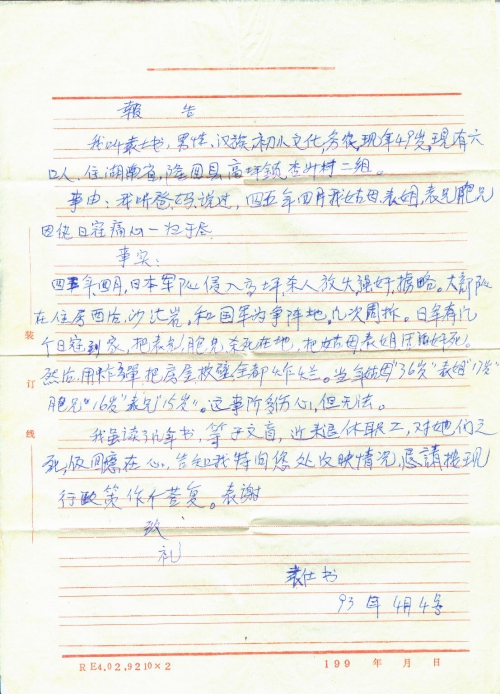 報 告
我叫袁仕书,男性,汉族,初小文化,务农,现年49岁,现有六
口人,住湖南省,洞口县,高坪镇,杏叶村二组。
事由:我听爸妈说过,四五年四月我姑母,表姐,表兄胞兄
因使日寇痛心一扫于尽
事实:
四五年四月,日本军队侵入高坪,杀人放火,强奸,掳略。大部队
在住房西洽,沙江岩,和国军为争阵地,几次周折。日军有几
个日寇到家,把表兄,胞兄,杀死在地,把姑母表姐
然后用炸弹把房屋被壁全部炸烂。当年姑母"36岁"表姐"17岁"
胞兄"16岁"表兄"15岁"。这事所多伤心,但无法。
我虽读了几年书,等于文盲,近来退休职工,对她们之
死,仮回憶在心,我特向您处反映情况,恳請按现
行政策作个荅复。表谢
致
礼
袁仕书
93年4月4号
装
订
线
RE4.02.9210×2
199 年 月 日